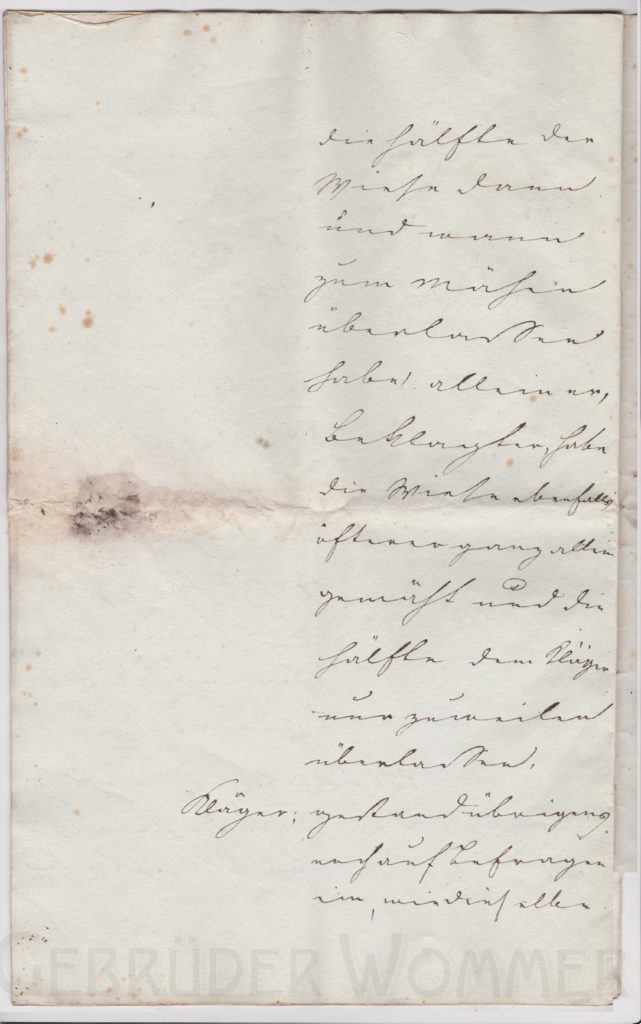 die Hälfte der
Wiese dann
und wann
zum Mähen
überlassen
habe, allein er,
Beklagter, habe
die Wiese ebenfalls
öfterer ganz allein
gemäht und die
Hälfte dem Kläger
nur zuweilen
überlassen.
Kläger; gestand übrigens
noch auf Befragen
ein, wie dieselbe
GEBRÜDER WOMMER